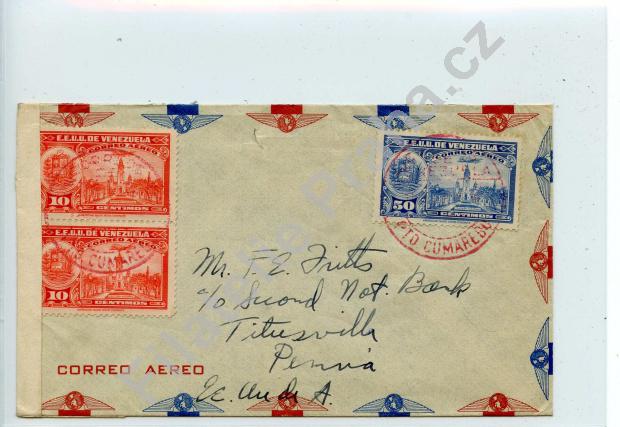 E.E.U.U. DE VENEZUELA
CORREO AEREO
10
CENTIMOS
E.E.U.U. DE VENEZUELA
CORREO AEREO
10
CENTIMOS
PTO CUMAREBO
E.E.U.U. DE VENEZUELA
CORREO AEREO
50
CENTIMOS
PTO CUMAREBO
Mr. F. E. Fritts
c/o Second Nat. Bank
Titusville
Penna
Ee. Uu de A.
CORREO AEREO
Filatelie Praga.cz